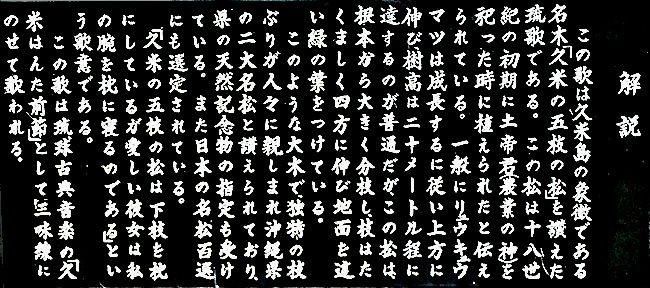 解説
この歌は久米島の象徴である
名木「久米の五枝の松」を讃えた
琉歌である。この松は十八世
紀の初期に土帝君(農業の神)を
祀った時に植えられたと伝え
られている。一般にリュウキュウ
マツは成長するに従い上方に
伸び樹高は二十メートル程に
達するのが普通だがこの松は、
根本から大きく分枝し枝はた
くましく四方に伸び地面を這
い緑の葉をつけている。
このような大木で独特の枝
ぶりが人々に親しまれ沖縄県
の二大名松と讃えられており、
県の天然記念物の指定も受け
ている。また日本の名松百選
にも選定されている。
「久米の五枝の松は下枝を枕
にしているが愛しい彼女は私
の腕を枕に寝るのである」とい
う歌意である。
この歌は琉球古典音楽の「久
米はんた前節」として三味線に
のせて歌われる。